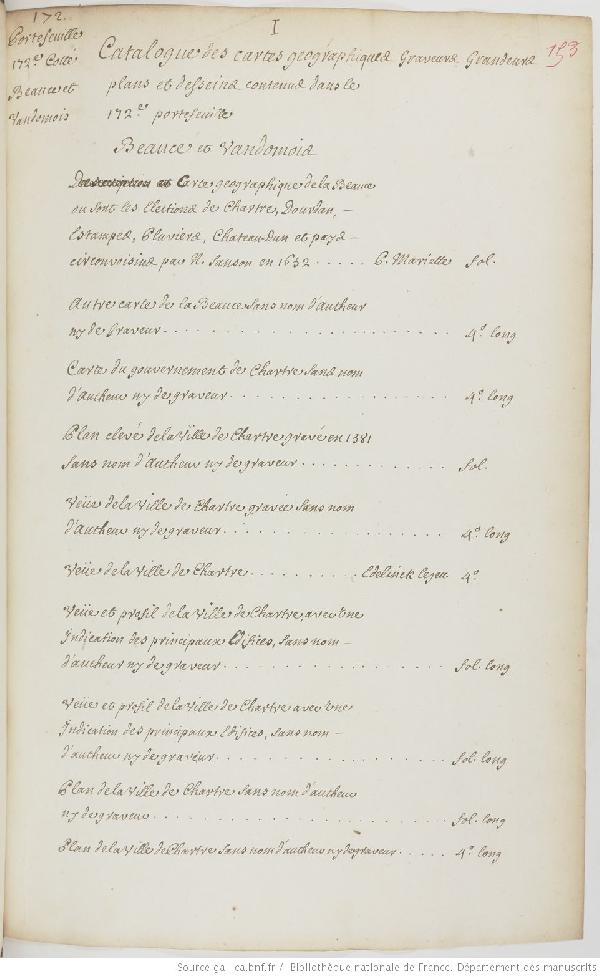 172.
Portefeuille
172.e Cotté
Beauce et
Vandomois
I
153
Catalogue des cartes geographiques Graveurs Grandeurs
plans et desseins contenus dans le
172.e portefeuille
Beauce et Vandomois
Description et Carte geographique de la Beauce
ou sont les Elections de Chartre, Dourdan, -
Estampes, Pluviers, Chateau-Dun et pays -
circonvoisins par N. Sanson en 1652 ..... P. Mariette fol.
Autre carte de la Beauce sans nom d'autheur
ny de Graveur .......... 4.o long
Carte du gouvernement de Chartre sans nom
d'autheur ny de graveur .......... 4.o long
Plan elevé de la Ville de Chartre gravé en 1381
sans nom d'autheur ny de graveur .......... fol.
Veüe de la Ville de Chartre gravée sans nom
d'autheur ny de graveur .......... 4.o long
Veüe de la Ville de Chartre ........ Edelinck le jeu 4.o
Veüe et profil de la Ville de Chartre, avec Une
Indication des principaux Edifices, sans nom -
d'autheur ny de graveur .......... fol. long
Veüe et profil de la Ville de Chartre avec Une
Indication des principaux Edifices, sans nom -
d'autheur ny de graveur .......... fol. long
Plan de la Ville de Chartre sans nom d'autheur
ny de graveur .......... fol. long
Plan de la Ville de Chartre sans nom d'autheur ny de graveur ..... 4.o long
Source gallica.bnf.fr / Bibliothèque nationale de France. Département des manuscrits